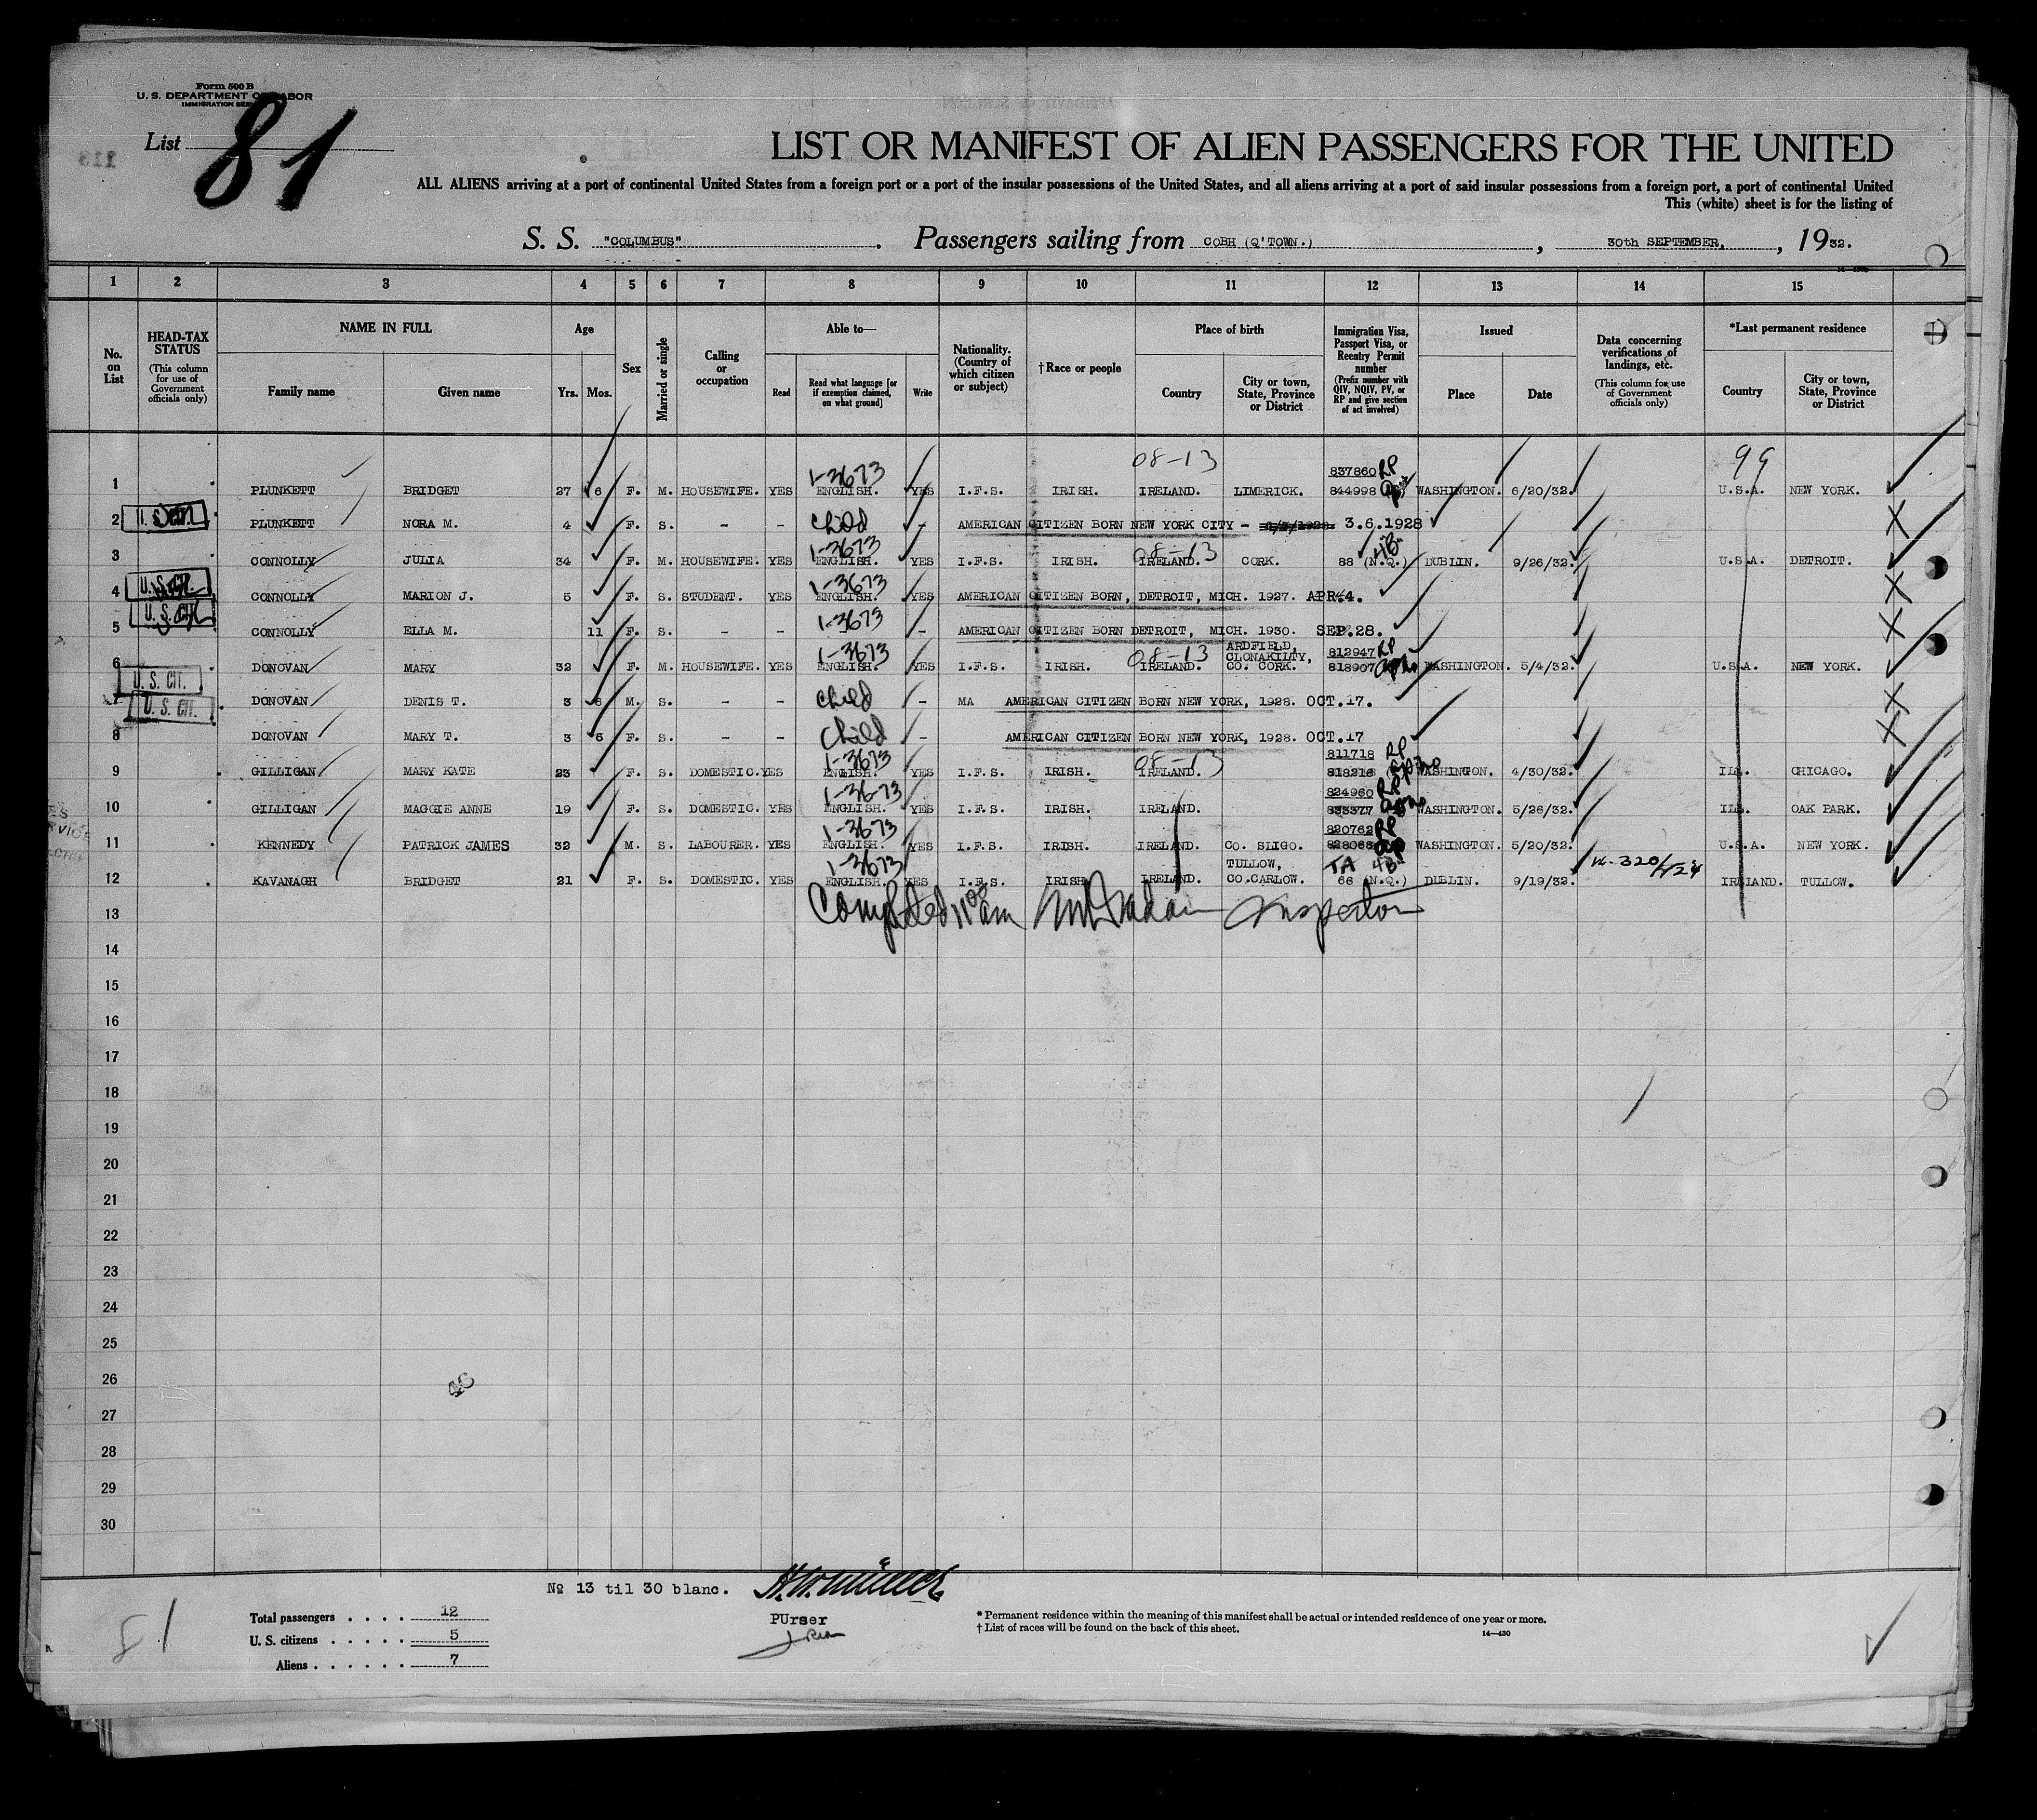 Form 500 B
U. S. DEPARTMENT OF LABOR
IMMIGRATION SERVICE
List 81
LIST OR MANIFEST OF ALIEN PASSENGERS FOR THE UNITED
ALL ALIENS arriving at a port of continental United States from a foreign port or a port of the insular possessions of the United States, and all aliens arriving at a port of said insular possessions from a foreign port, a port of continental United
This (white) sheet is for the listing of
S. S. "COLUMBUS" . Passengers sailing from COBH (Q'TOWN.) , 30th SEPTEMBER, , 1932.
1 2 3 4 5 6 7 8 9 10 11 12 13 14 15
No. on List
HEAD-TAX STATUS (This column for use of Government officials only)
NAME IN FULL Family name Given name
Age Yrs. Mos.
Sex
Married or single
Calling or occupation
Able to— Read Read what language [or if exemption claimed, on what ground] Write
Nationality. (Country of which citizen or subject)
†Race or people
Place of birth Country City or town, State, Province or District
Immigration Visa, Passport Visa, or Reentry Permit number (Prefix number with QIV, NQIV, PV, or RP and give section of act involved)
Issued Place Date
Data concerning verifications of landings, etc. (This column for use of Government officials only)
*Last permanent residence Country City or town, State, Province or District
1-3673 08-13 837860 RP 99
1 PLUNKETT BRIDGET 27 6 F. M. HOUSEWIFE. YES ENGLISH. YES I.F.S. IRISH. IRELAND. LIMERICK. 844998 WASHINGTON. 6/20/32. U.S.A. NEW YORK.
2 PLUNKETT NORA M. 4 F. S. - - child - AMERICAN CITIZEN BORN NEW YORK CITY - 3.6.1928
1-3673 08-13 4B
3 CONNOLLY JULIA 34 F. M. HOUSEWIFE. YES ENGLISH. YES I.F.S. IRISH. IRELAND. CORK. 88 (N.Q.) DUBLIN. 9/26/32. U.S.A. DETROIT.
U. S. CIT. 1-3673
4 CONNOLLY MARION J. 5 F. S. STUDENT. YES ENGLISH. YES AMERICAN CITIZEN BORN, DETROIT, MICH. 1927. APR.4.
U. S. CIT. 1-3673
5 CONNOLLY ELLA M. 11 F. S. - - - AMERICAN CITIZEN BORN DETROIT, MICH. 1930. SEP.28.
1-3673 08-13 ARDFIELD, CLONAKILTY, 812947 RP
6 DONOVAN MARY 32 F. M. HOUSEWIFE. YES ENGLISH. YES I.F.S. IRISH. IRELAND. CO. CORK. 818907 WASHINGTON. 5/4/32. U.S.A. NEW YORK.
U. S. CIT.
7 DONOVAN DENIS T. 3 6 M. S. - - child - MA AMERICAN CITIZEN BORN NEW YORK, 1928. OCT.17.
U. S. CIT.
8 DONOVAN MARY T. 3 6 F. S. - - child - AMERICAN CITIZEN BORN NEW YORK, 1928. OCT.17
1-3673 08-13 811718 RP
9 GILLIGAN MARY KATE 23 F. S. DOMESTIC. YES ENGLISH. YES I.F.S. IRISH. IRELAND. 818216 WASHINGTON. 4/30/32. ILL. CHICAGO.
1-3673 824960 RP
10 GILLIGAN MAGGIE ANNE 19 F. S. DOMESTIC. YES ENGLISH. YES I.F.S. IRISH. IRELAND. 833377 WASHINGTON. 5/26/32. ILL. OAK PARK.
1-3673 820762 RP
11 KENNEDY PATRICK JAMES 32 M. S. LABOURER. YES ENGLISH. YES I.F.S. IRISH. IRELAND. CO. SLIGO. 828068 WASHINGTON. 5/20/32. U.S.A. NEW YORK.
1-3673 TULLOW, TA 4B
12 KAVANAGH BRIDGET 21 F. S. DOMESTIC. YES ENGLISH. YES I.F.S. IRISH. IRELAND. CO.CARLOW. 66 (N.Q.) DUBLIN. 9/19/32. IRELAND. TULLOW.
13 Completed 11 00 am Inspector
14
15
16
17
18
19
20
21
22
23
24
25
26
27
28
29
30
№ 13 til 30 blanc.
PUrser
81
Total passengers . . . . 12
U. S. citizens . . . . . 5
Aliens . . . . . . 7
* Permanent residence within the meaning of this manifest shall be actual or intended residence of one year or more.
† List of races will be found on the back of this sheet.
14—430